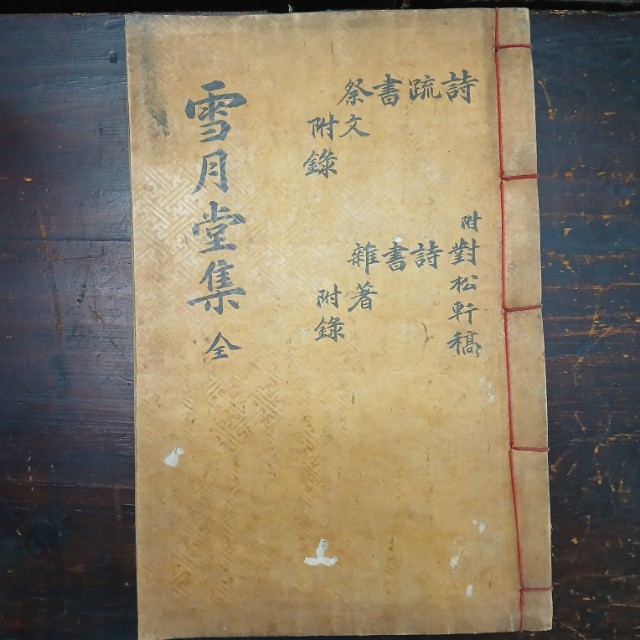 雪月堂集 全
詩
疏
書
祭文
附錄
附對松軒稿
詩
書
雜著
附錄